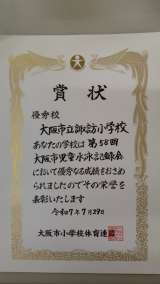 賞状
優秀校
大阪市立諏訪小学校
あなたの学校は第58回
大阪市児童水泳記録会
において優秀なる成績をおさめ
られましたのでその栄誉を
表彰いたします
令和7年7月29日
大阪市小学校体育連盟